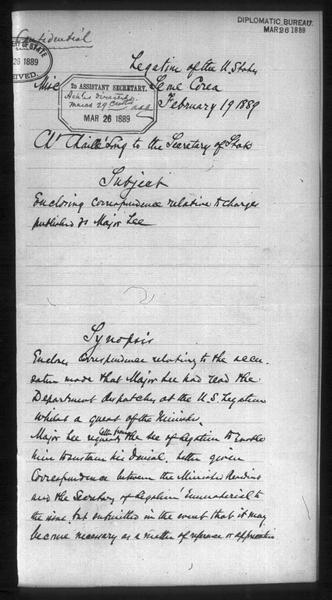 Confidential
DIPLOMATIC BUREAU.
MAR 26 1889
Legation of the U. States
Seoul Corea
February 19 1889
2D ASSISTANT SECRETARY.
MAR 26 1889
OF STATE
26 1889
Ch Chaillé Long to the Secretary of State
Subject
Enclosing correspondence relative to charges
published vs Major Lee
Synopsis
Encloses correspondence relating to the accu-
sation made that Major Lee had read the
Department despatches at the U.S. Legation
whilst a guest of the Minister.
Major Lee requests letter from the Sec of Legation to enable
him to sustain his denial. Letter given
Correspondence between the Minister Resident
and the Secretary of Legation immaterial to
the issue, but submitted in the event that it may
become necessary as a matter of reference or